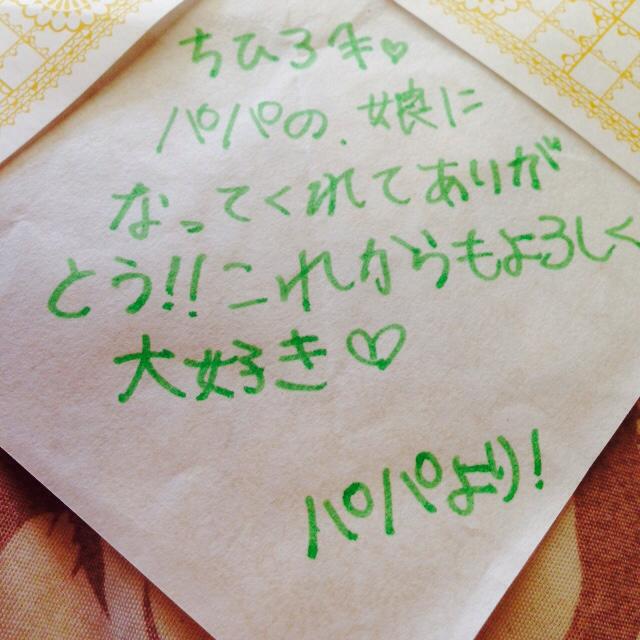 ちひろキ♡
パパの.娘に
なってくれてありが
とう!!これからもよろしく
大好き♡
パパより!